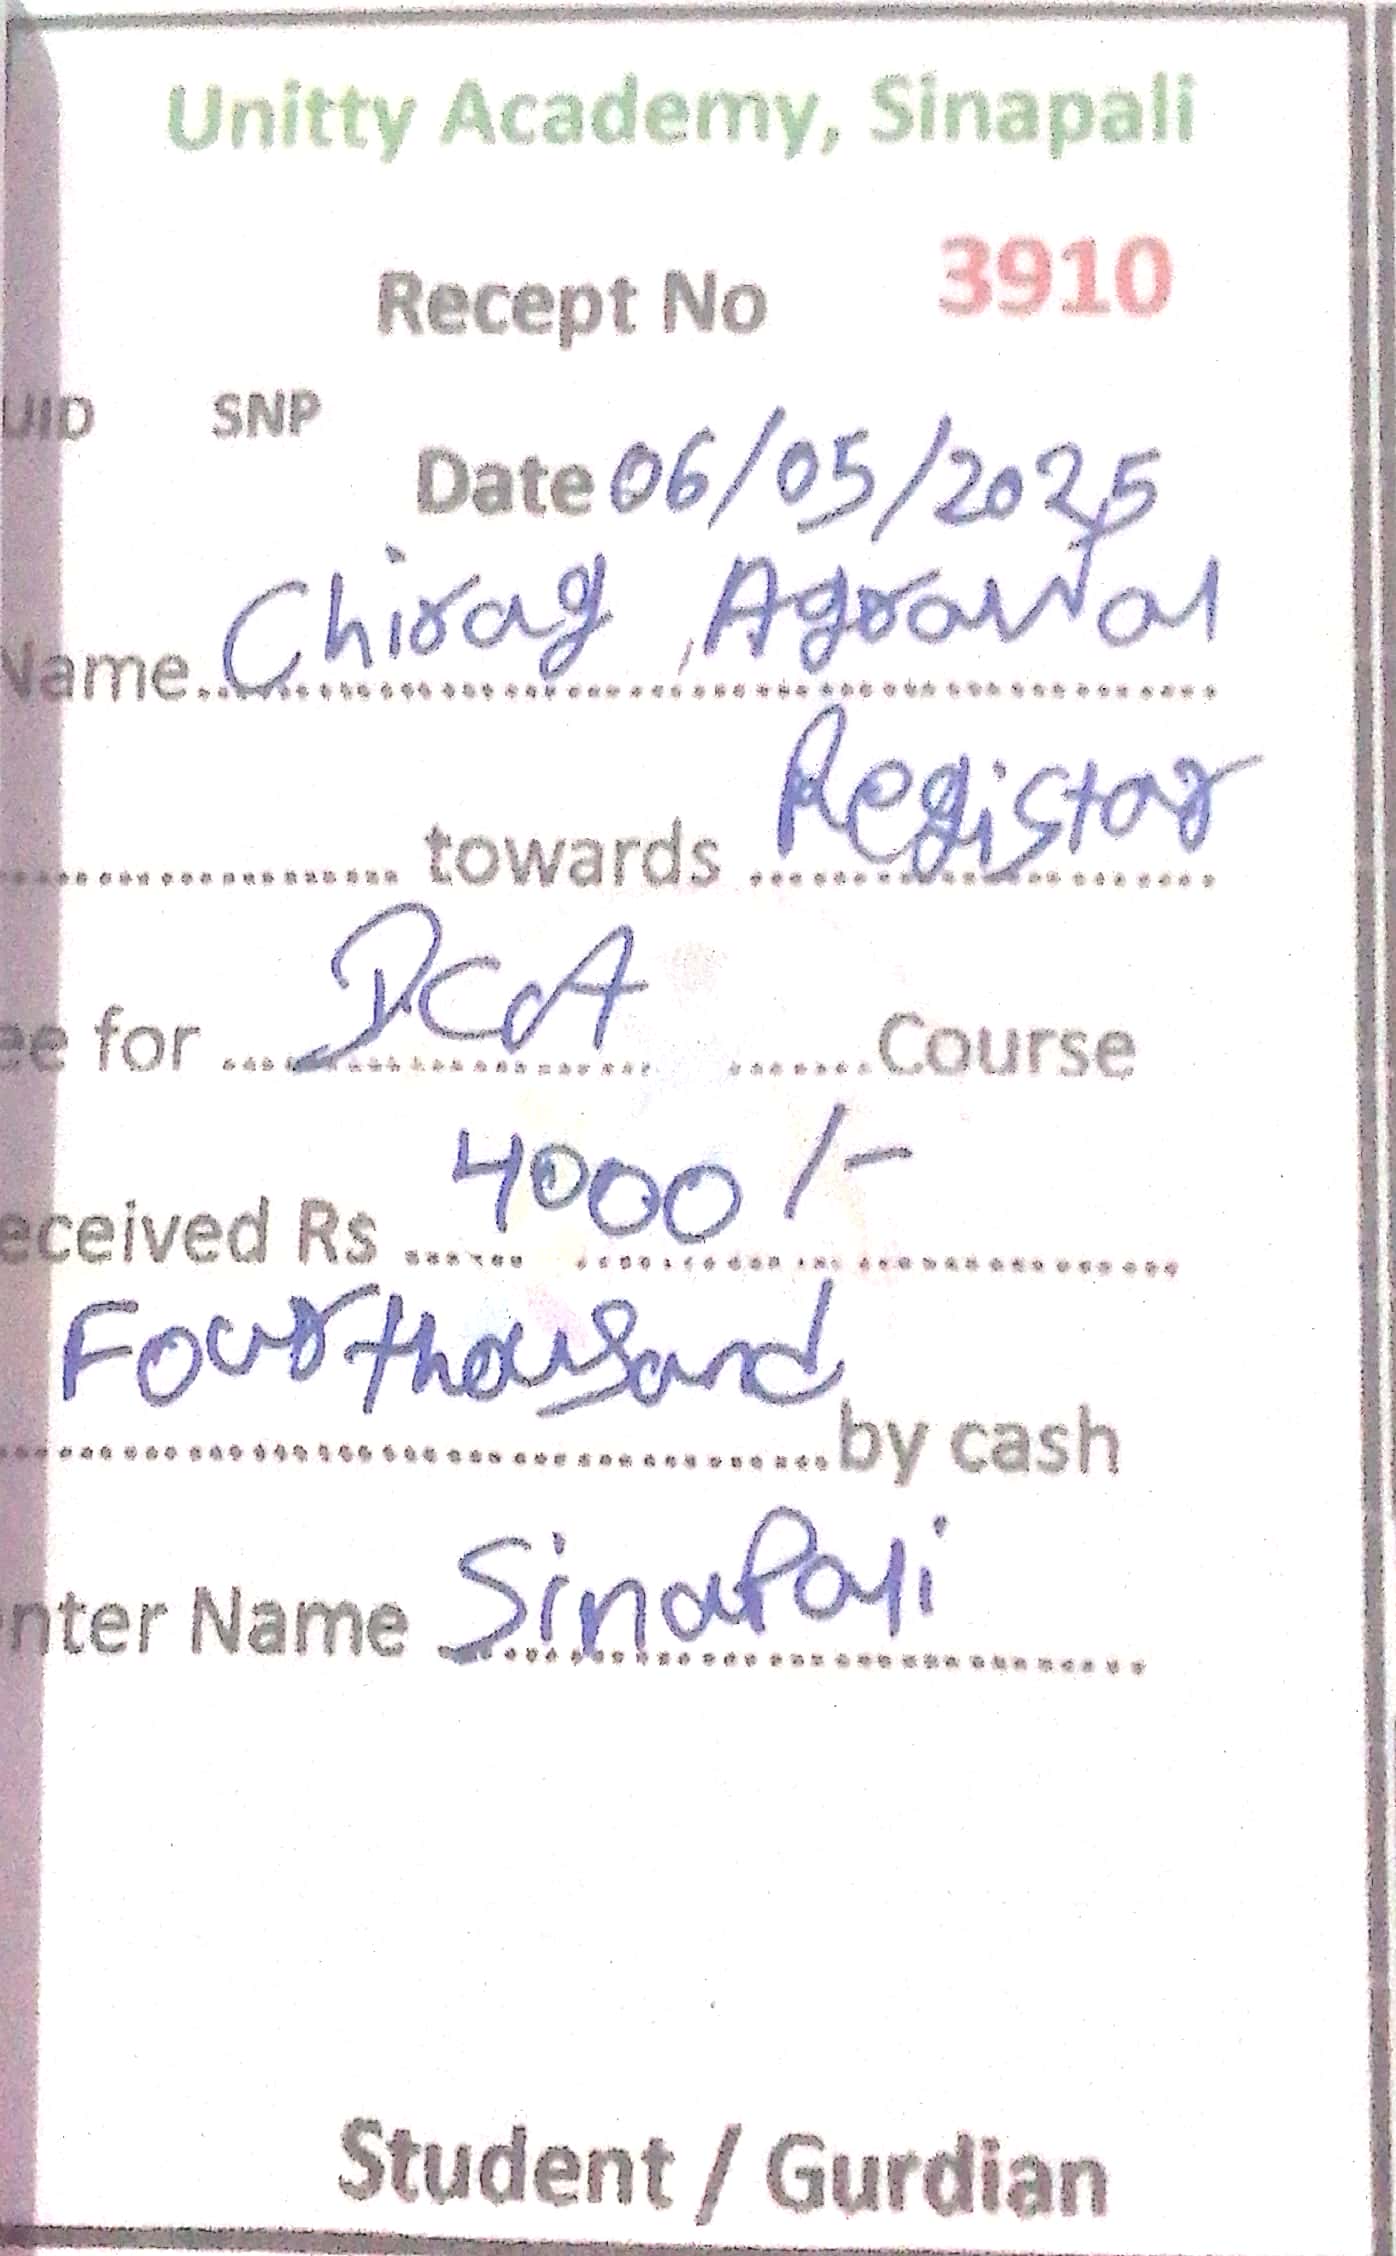 Unitty Academy, Sinapali
Recept No 3910
UID SNP
Date 06/05/2025
Name Chirag Agrawal
towards Registar
ee for DCA Course
eceived Rs 4000/-
Four thousand by cash
nter Name Sinapali
Student / Gurdian